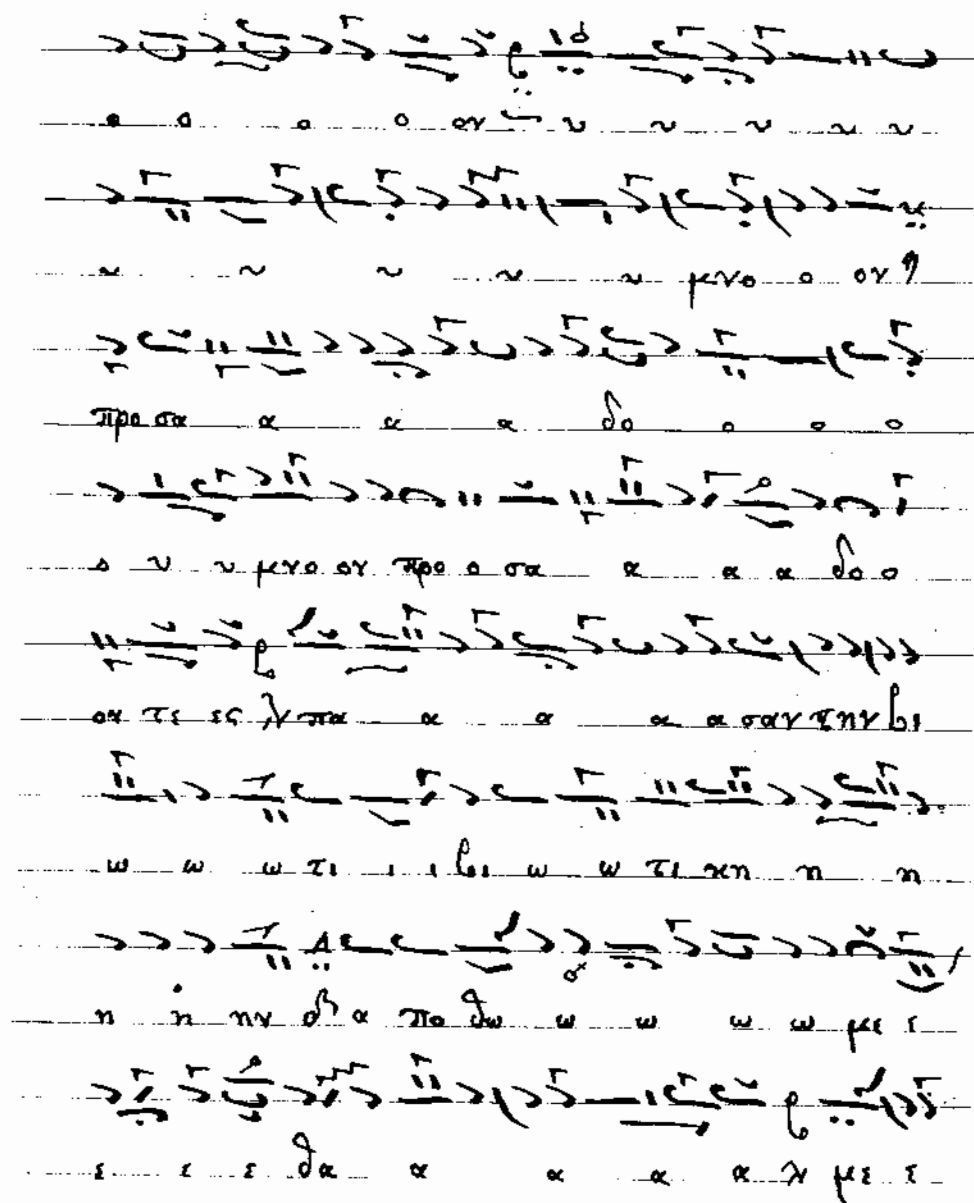 ο ο ο ο ον υ υ υ υ υ
υ υ υ υ υ μνο ο ον
προ σα α α α δο ο ο ο
υ υ μνο ον προ ο σα α α α δο ο
ον τε ες πα α α α α σαν την βι
ω ω ω τι ι ι βι ω ω τι κη η η
η η ην α πο θω ω ω ω ω με ε
ε ε ε θα α α α α με ε